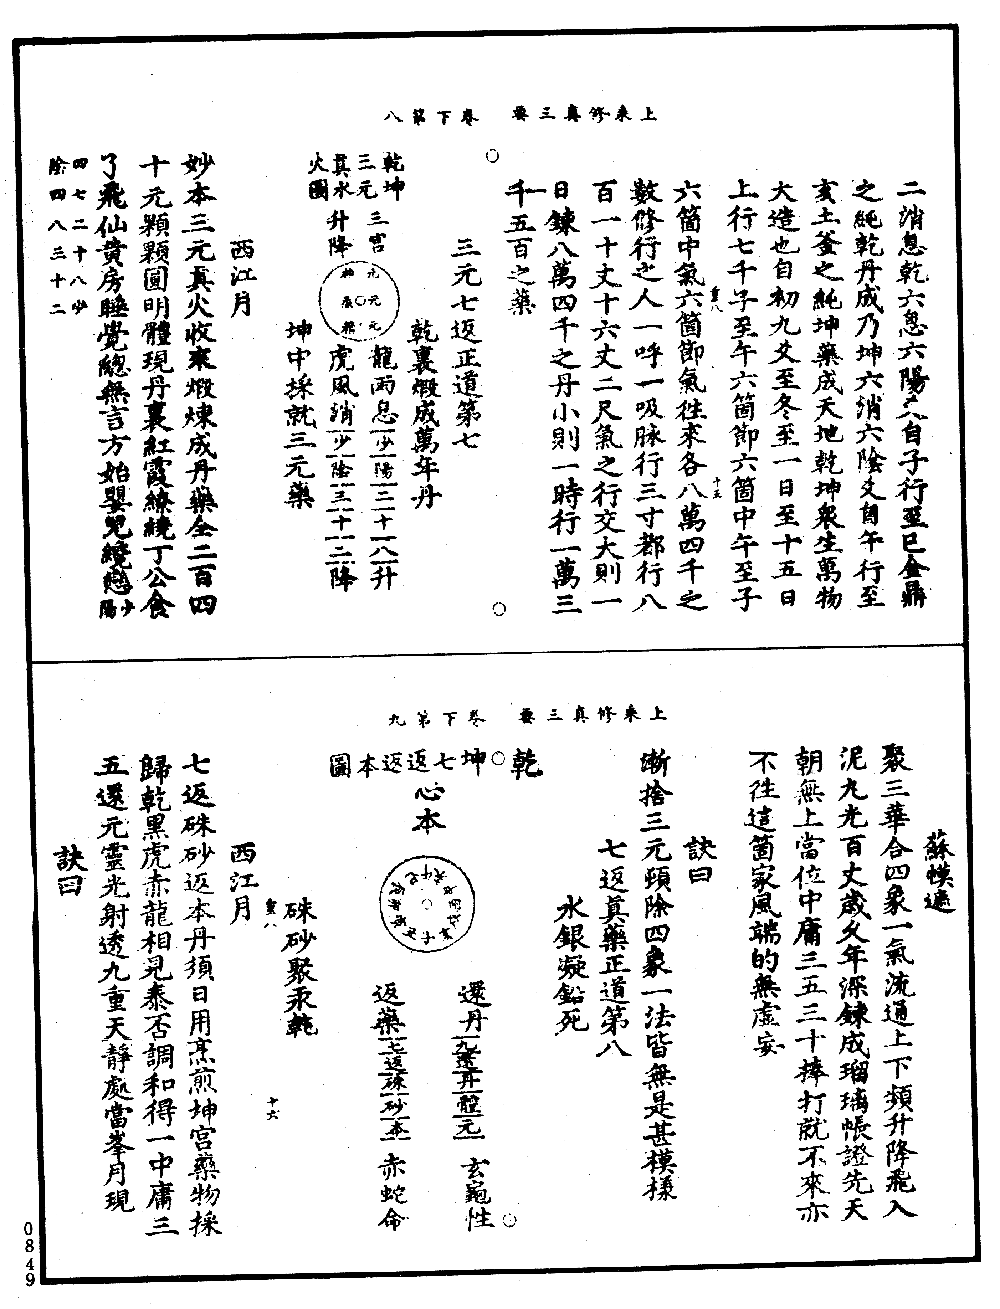 上乘修真三要　卷下第八
二消息乾六息六陽爻自子行至巳金鼎
之純乾丹成乃坤六消六陰爻自午行至
亥土釜之純坤藥成天地乾坤衆生萬物
大造也自初九爻至冬至一日至十五日
上行七千子至午六箇節六箇中午至子
六箇中氣六箇節氣往來各八萬四千之
數修行之人一呼一吸脉行三寸都行八
百一十丈十六丈二尺氣之行交大則一
日鍊八萬四千之丹小則一時行一萬三
千五百之藥
三元七返正道第七
乾裏煅成萬年丹
乾坤
三元
真水
火圖
三宮
升降
龍雨息少陽二十八升
虎風消少陰三十二降
坤中採就三元藥
西江月
妙本三元真火收來煅煉成丹藥全二百四
十元顆顆圓明體現丹裏紅霞繚繞丁公食
了飛仙黄房睡覺總無言方始嬰兒繞戀少陽
四七二十八少
陰四八三十二
上乘修真三要　卷下第九
蘇幙遮
聚三華合四象一氣流通上下頻升降飛入
泥丸光百丈歲久年深鍊成瑠璃帳證先天
朝無上當位中庸三五三十棒打就不來亦
不往這箇家風端的無虛妄
訣曰
漸捨三元頓除四象一法皆無是甚模樣
七返真藥正道第八
水銀凝鉛死
乾
坤七返返本圖
心本
還丹九還丹體元玄龜性
返藥七返硃砂本赤蛇命
硃砂聚汞乾
西江月
七返硃砂返本丹須日用烹煎坤宮藥物採
歸乾黑虎赤龍相見泰否調和得一中庸三
五還元靈光射透九重天靜處當峯月現
訣曰
0849